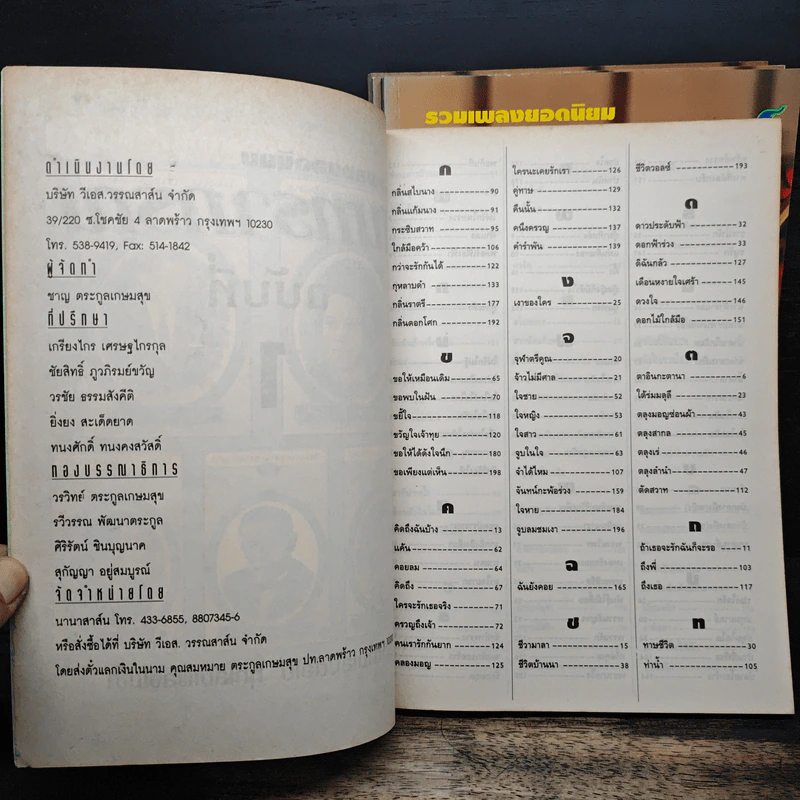 ดำเนินงานโดย
บริษัท วีเอส.วรรณสาส์น จำกัด
39/220 ซ.โชคชัย 4 ลาดพร้าว กรุงเทพฯ 10230
โทร. 538-9419, Fax: 514-1842
ผู้จัดทำ
ชาญ ตระกูลเกษมสุข
ที่ปรึกษา
เกรียงไกร เศรษฐไกรกุล
ชัยสิทธิ์ ภูวภิรมย์ขวัญ
วรชัย ธรรมสังคีติ
ยิ่งยง สะเด็ดยาด
ทนงศักดิ์ ทนงคงสวัสดิ์
กองบรรณาธิการ
วรวิทย์ ตระกูลเกษมสุข
รวีวรรณ พัฒนาตระกูล
ศิริรัตน์ ชินบุญนาค
สุกัญญา อยู่สมบูรณ์
จัดจำหน่ายโดย
นานาสาส์น โทร. 433-6855, 8807345-6
หรือสั่งซื้อได้ที่ บริษัท วีเอส. วรรณสาส์น จำกัด
โดยส่งตั๋วแลกเงินในนาม คุณสมหมาย ตระกูลเกษมสุข ปท.ลาดพร้าว กรุงเทพฯ
รวมเพลงยอดนิยม
ก
กลิ่นสไบนาง 90
กลิ่นแก้มนาง 91
กระซิบสวาท 95
ใกล้มือคว้า 106
กว่าจะรักกันได้ 122
กุหลาบดำ 133
กลิ่นราตรี 177
กลิ่นดอกโศก 192
ข
ขอให้เหมือนเดิม 65
ขอพบในฝัน 70
ขยี้ใจ 118
ขวัญใจเจ้าทุย 120
ขอให้ได้ดังใจนึก 180
ขอเพียงแต่เห็น 198
ค
คิดถึงฉันบ้าง 13
แค้น 62
คอยลม 64
คิดถึง 67
ใครจะรักเธอจริง 71
ครวญถึงเจ้า 72
คนเรารักกันยาก 124
คลองมอญ 125
ใครนะเคยรักเรา 126
คู่ทาษ 129
คืนนั้น 132
คนึงครวญ 137
คำรำพัน 139
ง
เงาของใคร 25
จ
จุฬาตรีคูณ 20
จ้าวไม่มีศาล 21
ใจชาย 52
ใจหญิง 53
ใจสาว 61
จูบในใจ 63
จำได้ไหม 107
จันทน์กะพ้อร่วง 159
ใจหาย 184
จูบลมชมเงา 196
ฉ
ฉันยังคอย 165
ช
ชีวามาลา 15
ชีวิตบ้านนา 38
ชีวิตวอลซ์ 193
ด
ดาวประดับฟ้า 32
ดอกฟ้าร่วง 33
ดิฉันกลัว 127
เดือนหงายใจเศร้า 145
ดวงใจ 146
ดอกไม้ใกล้มือ 151
ต
ตาอินกะตานา 6
ใต้ร่มมลุลี 23
ตลุงมอญซ่อนผ้า 43
ตลุงสากล 45
ตลุงเร่ 46
ตลุงลำนำ 47
ตัดสวาท 112
ถ
ถ้าเธอจะรักฉันก็จะรอ 11
ถึงพี่ 103
ถึงเธอ 117
ท
ทาษชีวิต 30
ท่าน้ำ 105